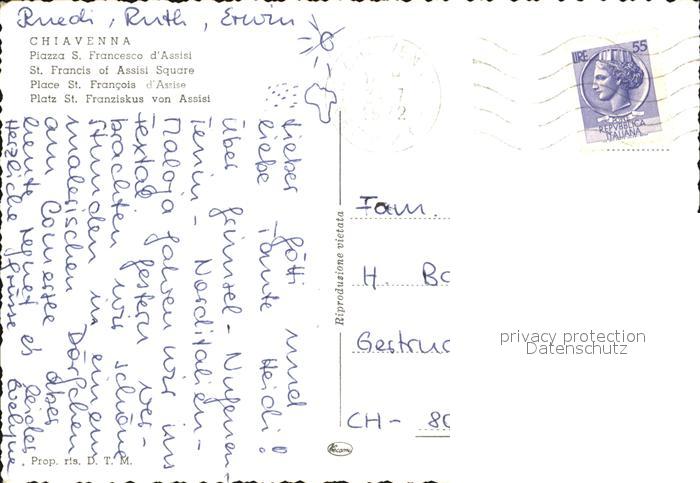 Ruedi, Ruth, Erwin
CHIAVENNA
Piazza S. Francesco d'Assisi
St. Francis of Assisi Square
Place St. François d'Assise
Platz St. Franziskus von Assisi
Lieber Götti und
liebe Tante Heidi!
Über Grimsel - Nufenen -
Tessin - Norditalien -
Maloja fahren wir ins
Gestern ver-
brachten wir schöne
Stunden in einem
malerischen Dörfchen
am Comersee. Aber
heute regnet es leider.
Herzliche Grüsse Eveline
Prop. ris. D. T. M.
Riproduzione vietata
LIRE 55
REPVBBLICA
ITALIANA
Fam.
H. Bo
Gestruc
CH - 80
privacy protection
Datenschutz